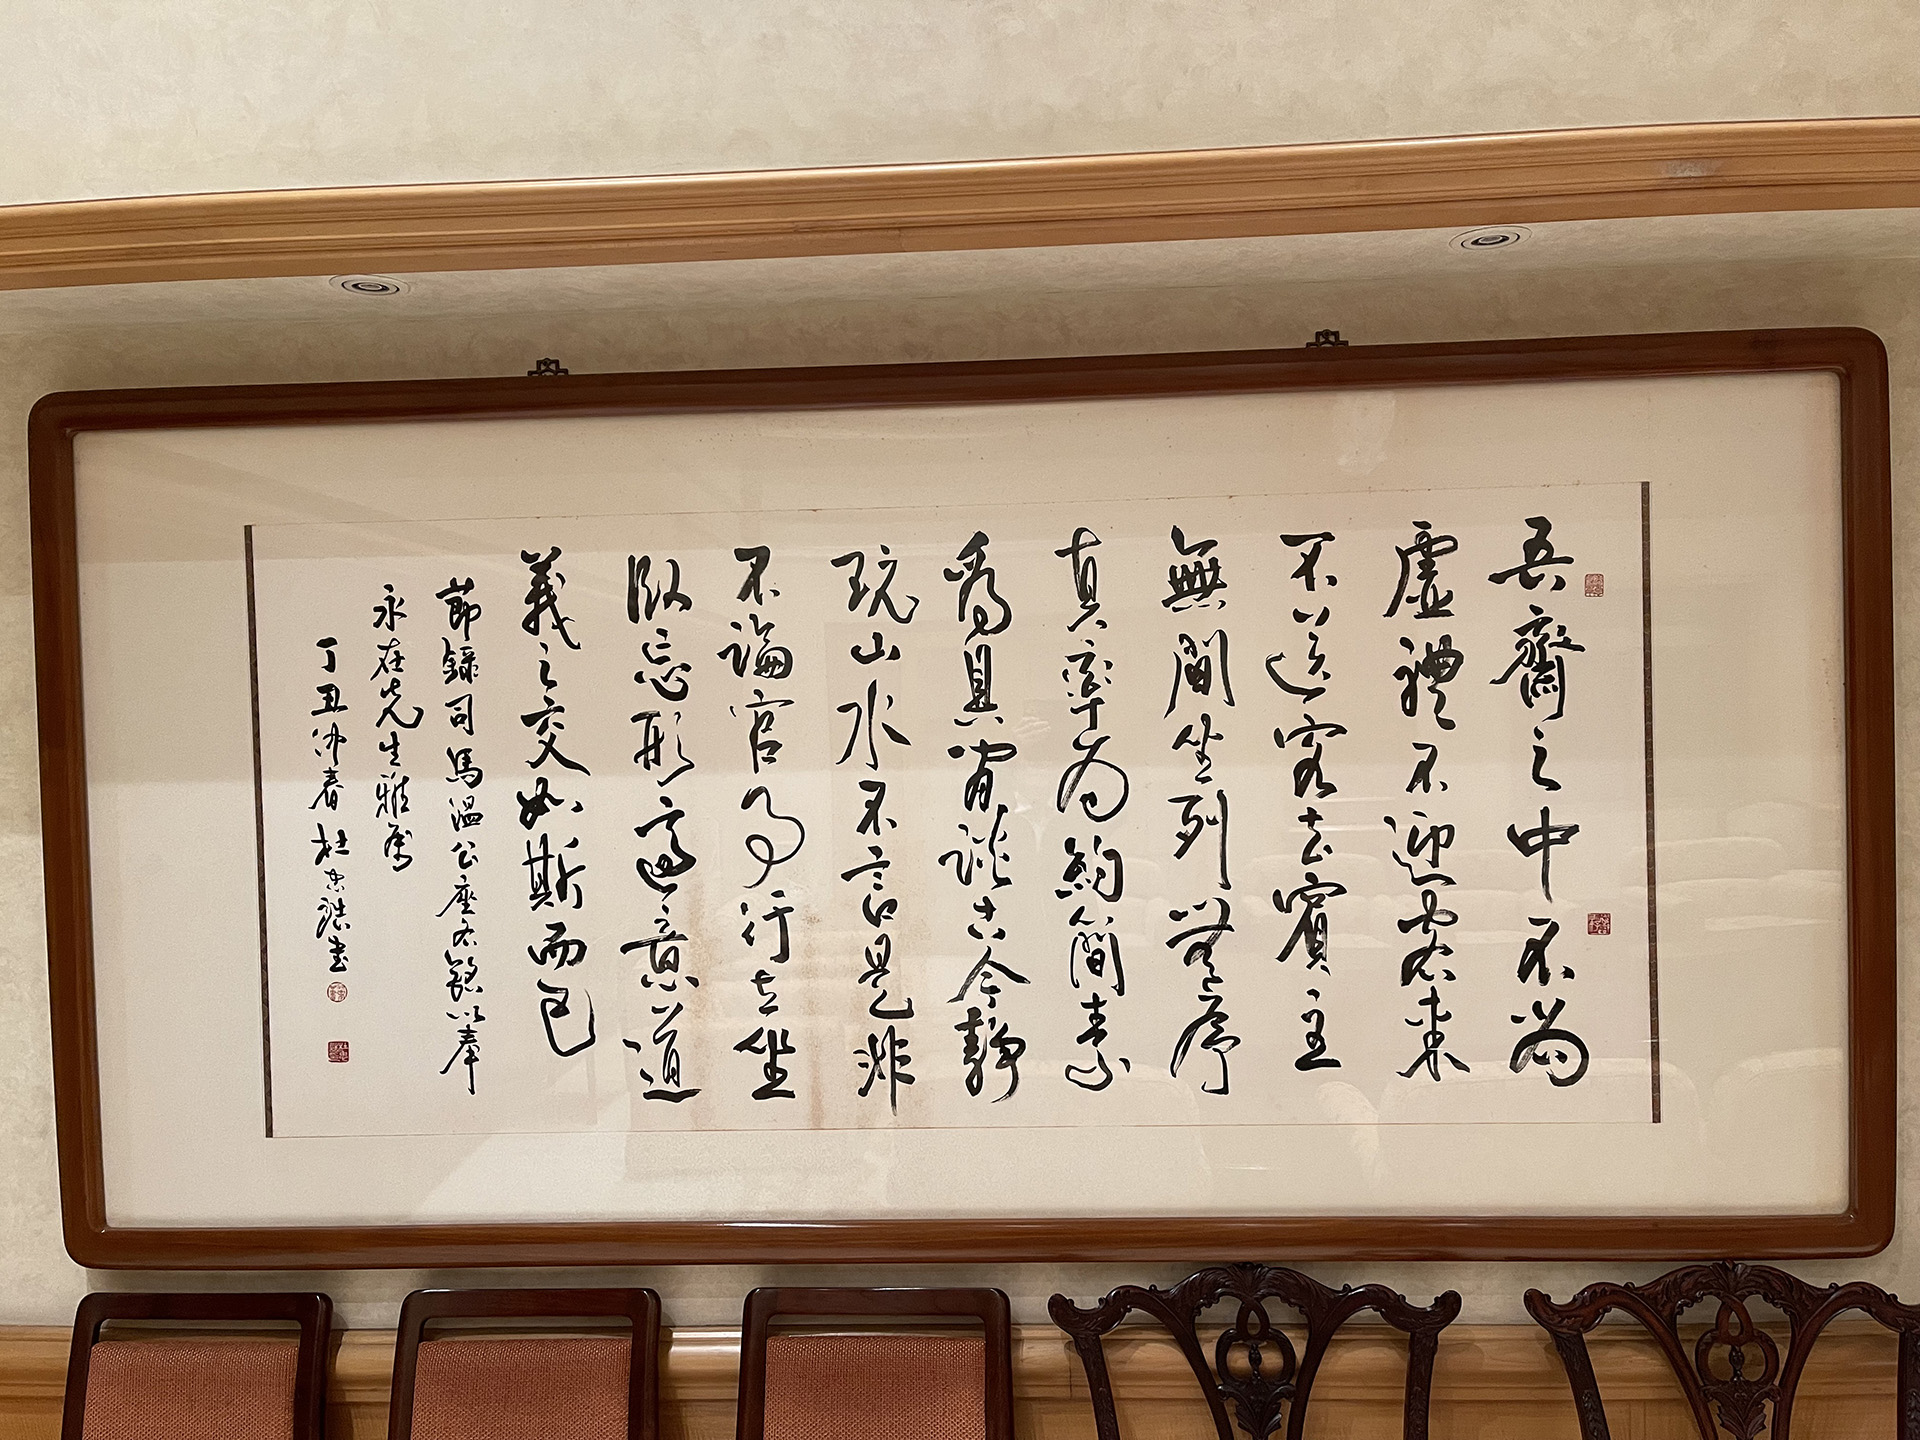 吾齋之中不尚
虛禮不迎客來
不送客去賓主
無間坐列無序
真率為約簡素
為具有談古今靜
玩山水不言是非
不論官事行立坐
臥忘形適意道
義之交如斯而已
節錄司馬溫公座右銘以奉
永在先生雅屬
丁丑仲春杜忠誥書